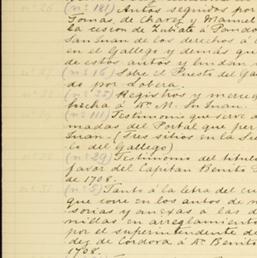 (nº 181) Autos seguidos por
Tomás, de Chavez y Manuel
la cesion de Zubiate a Pando
San Juan de los derechos á
en el Gallego y demás que
de estos autos y lindan
(nº 16) Sobre el Puesto del Ga
do por Lobera.
Registros y merced
hecha á Dn. M. San Juan.
(nº 111) Testimonio que sirve de
madas del Portal que per
Gran. (Tres sitios en la Se
cio del Gallego)
(nº 29) Testimonio del titulo
favor del Capitan Benito
de 1708.
(nº 8) Tanto á la letra del cu
que corre en los autos de m
sorias y anexas a las d
midas en arreglamiento
por el superintendente d
dez de Córdova á Dn. Benito
1708.